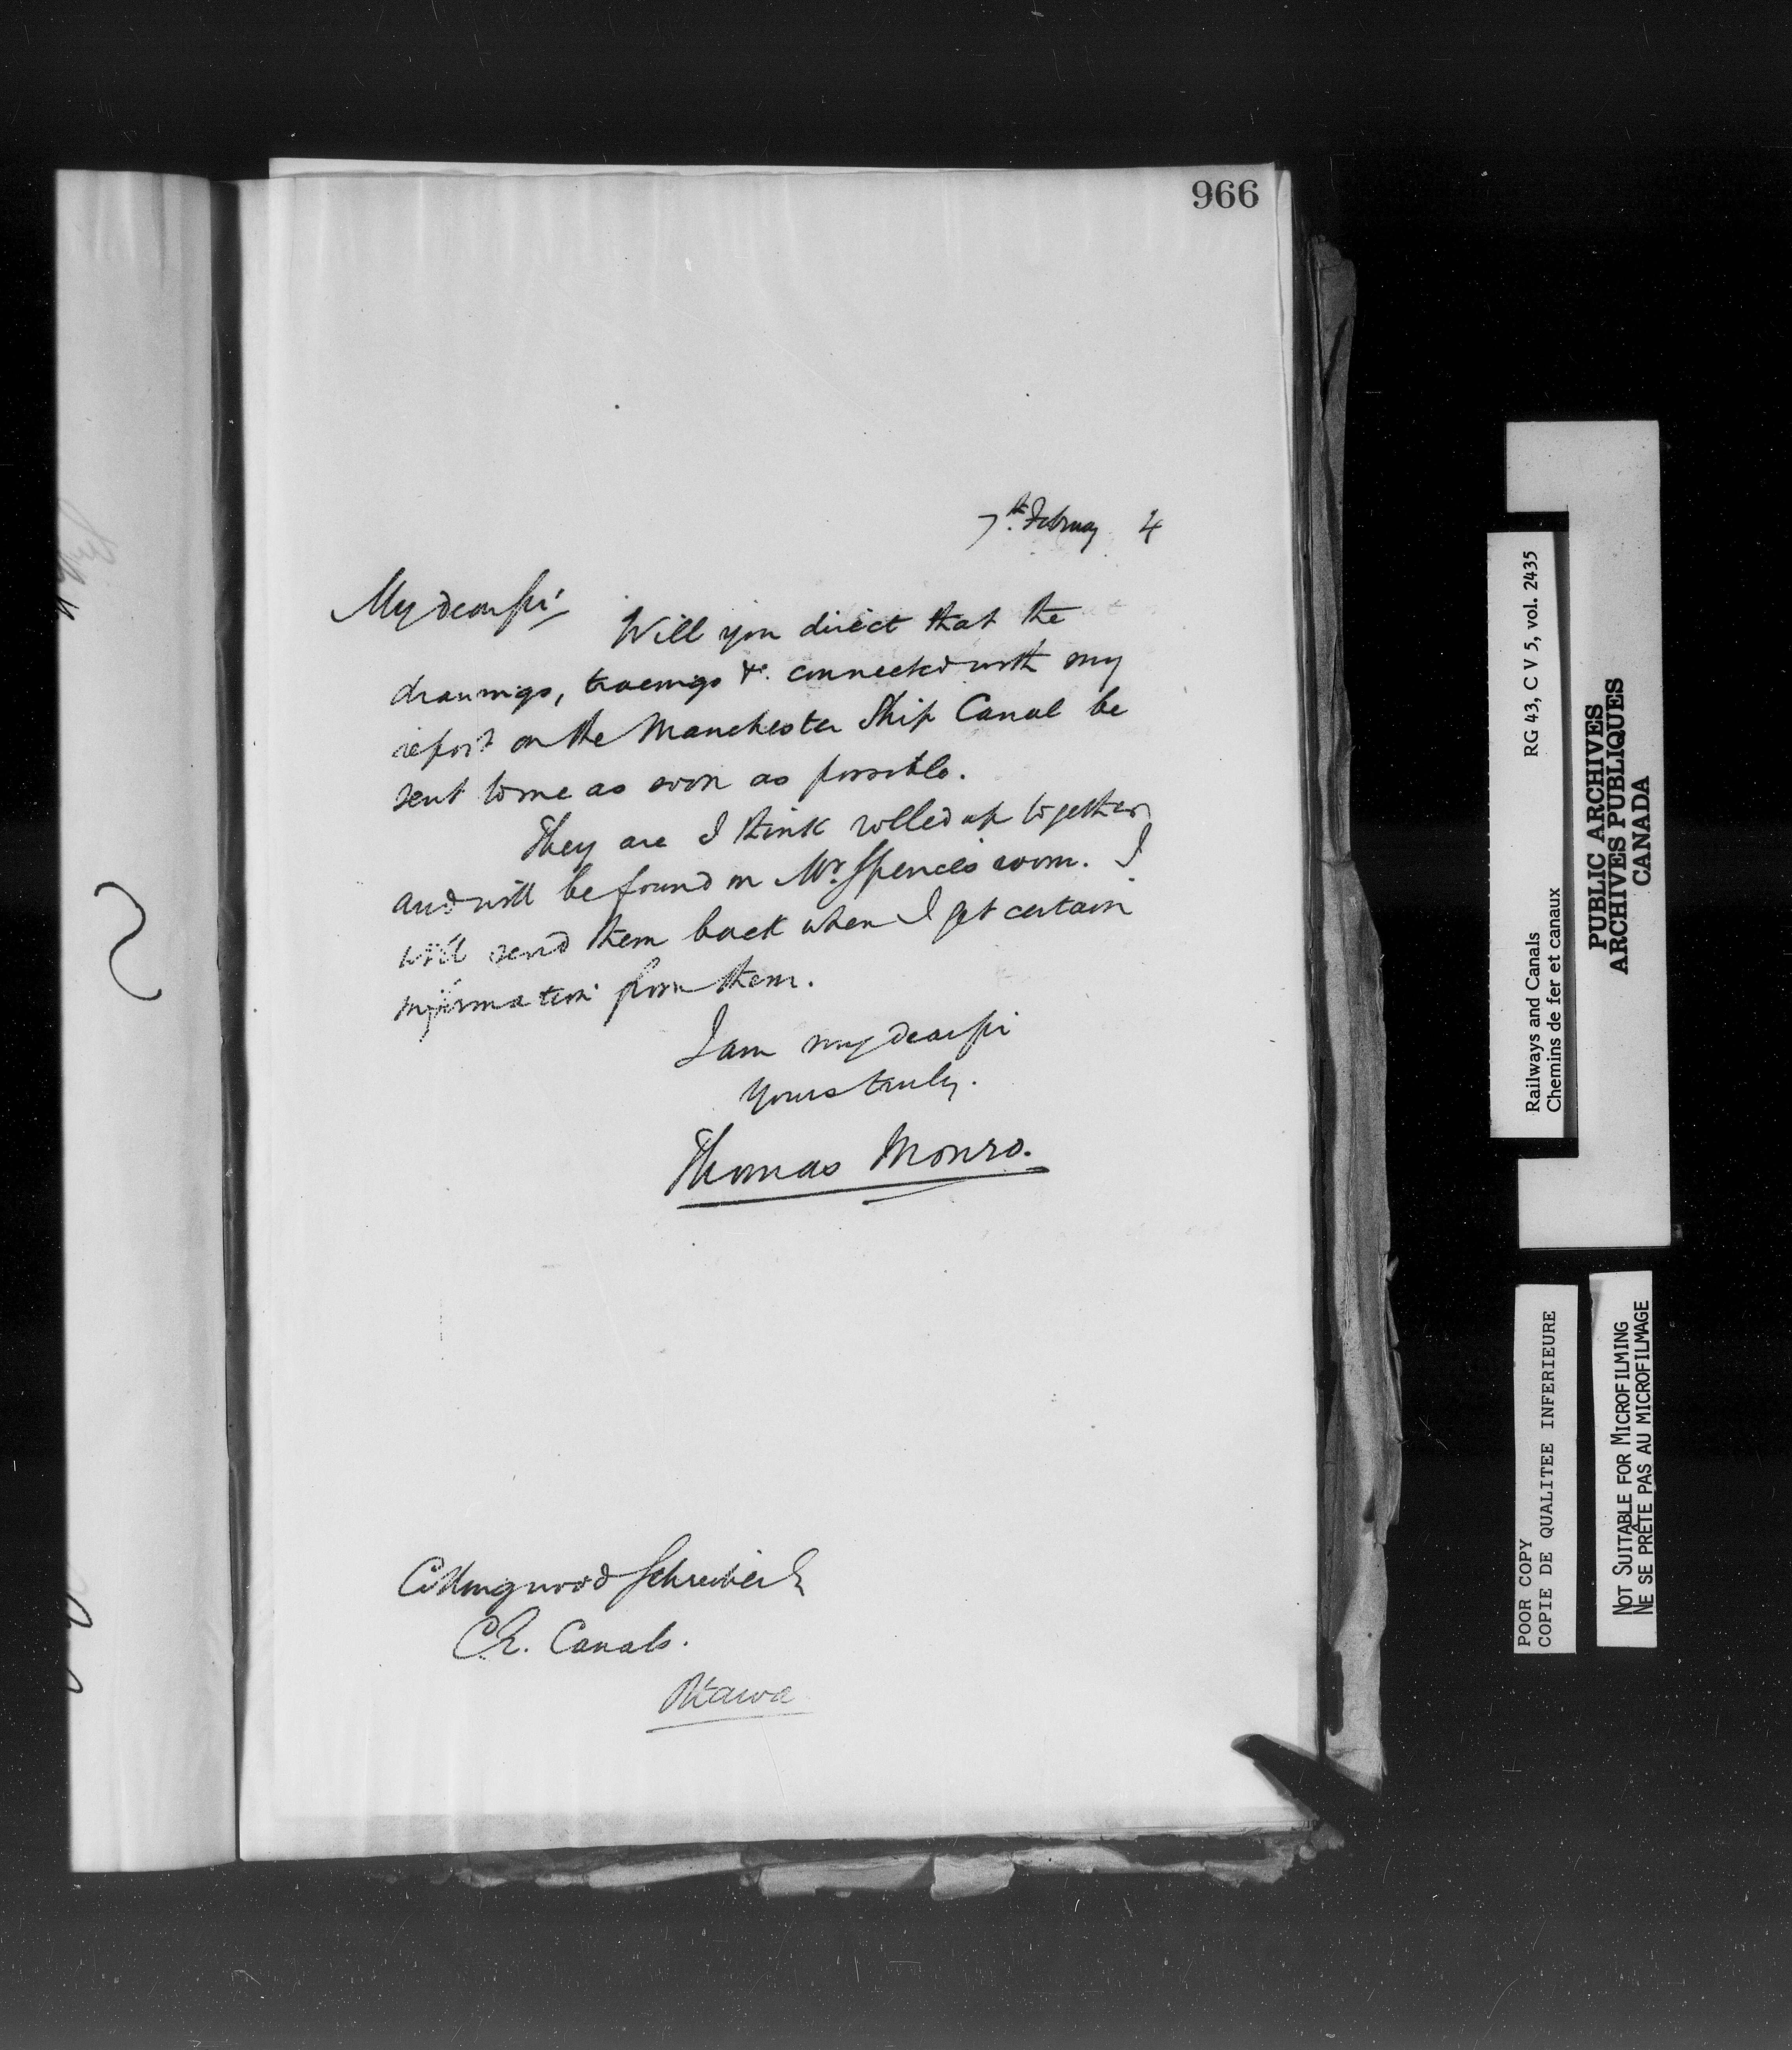 966
7th February 4
My dear Sir
Will you direct that the
drawings, tracings &c. connected with my
report on the Manchester Ship Canal be
sent to me as soon as possible.
They are I think rolled up together
and will be found in Mr. Spence's room. I
will send them back when I get certain
information from them.
I am my dear Sir
Yours truly.
Thomas Monro.
Collingwood Schreiber
Canals.
Ottawa
Railways and Canals RG 43, C V 5, vol. 2435
Chemins de fer et canaux
PUBLIC ARCHIVES
ARCHIVES PUBLIQUES
CANADA
POOR COPY
COPIE DE QUALITEE INFERIEURE
NOT SUITABLE FOR MICROFILMING
NE SE PRÊTE PAS AU MICROFILMAGE